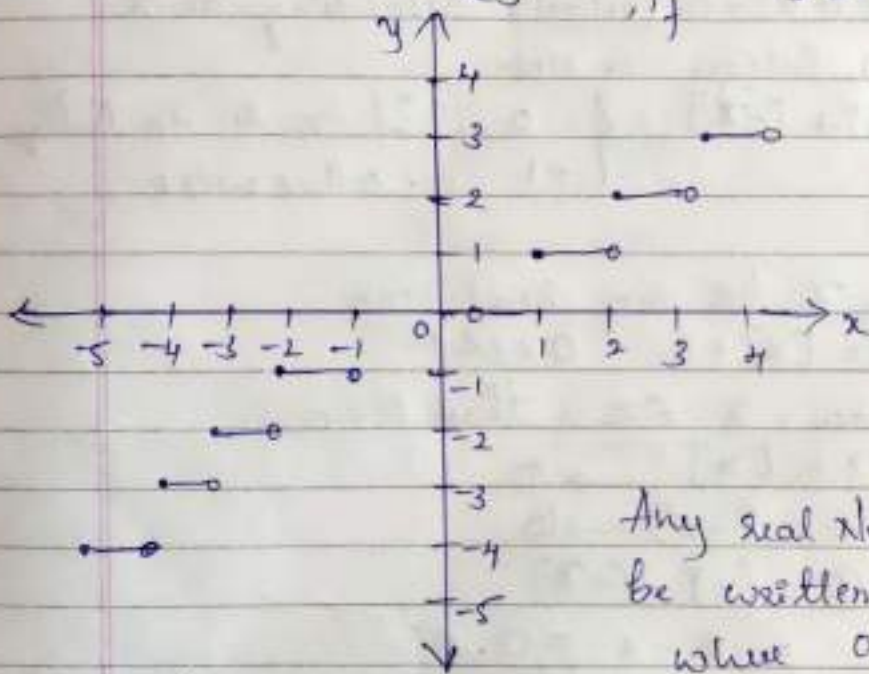 , if
y
4
3
2
1
0 0
-5 -4 -3 -2 -1 1 2 3 4 x
-1
-2
-3
-4
-5
Any real N
be written
where 0